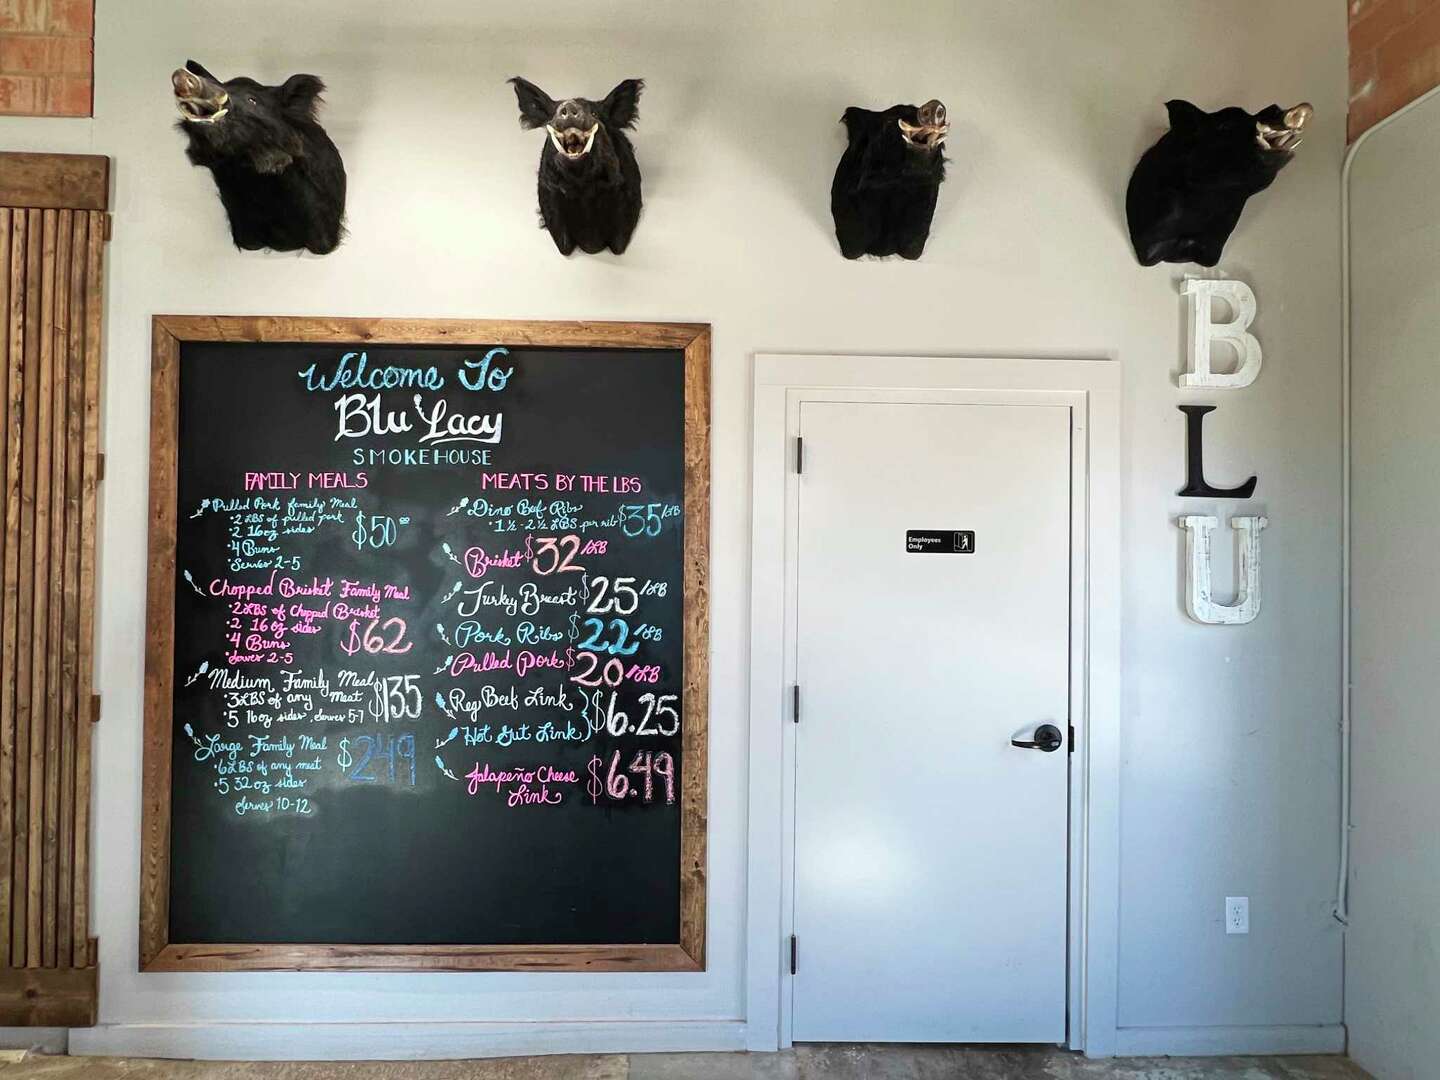 Welcome To
Blu Lacy
SMOKEHOUSE
FAMILY MEALS
Pulled Pork Family Meal
• 2 LBS of pulled pork
2 16oz sides
• 4 Buns
• Serves 2-5
$50⁰⁰
Chopped Brisket Family Meal
• 2 LBS of Chopped Brisket
• 2 16 oz sides
• 4 Buns
Serves 2-5
$62
Medium Family Meal
• 3 LBS of any meat
• 5 16oz sides, Serves 5-7
$135
Large Family Meal
• 6 LBS of any meat
• 5 32 oz sides
Serves 10-12
$249
MEATS BY THE LBS
Dino Beef Ribs
• 1 ½ - 2 ½ LBS per rib
$35/LB
Brisket $32/LB
Turkey Breast $25/LB
Pork Ribs $22/LB
Pulled Pork $20/LB
Reg Beef Link
Hot Gut Link
$6.25
Jalapeño Cheese
Link
$6.49
Employees
Only
B
L
U